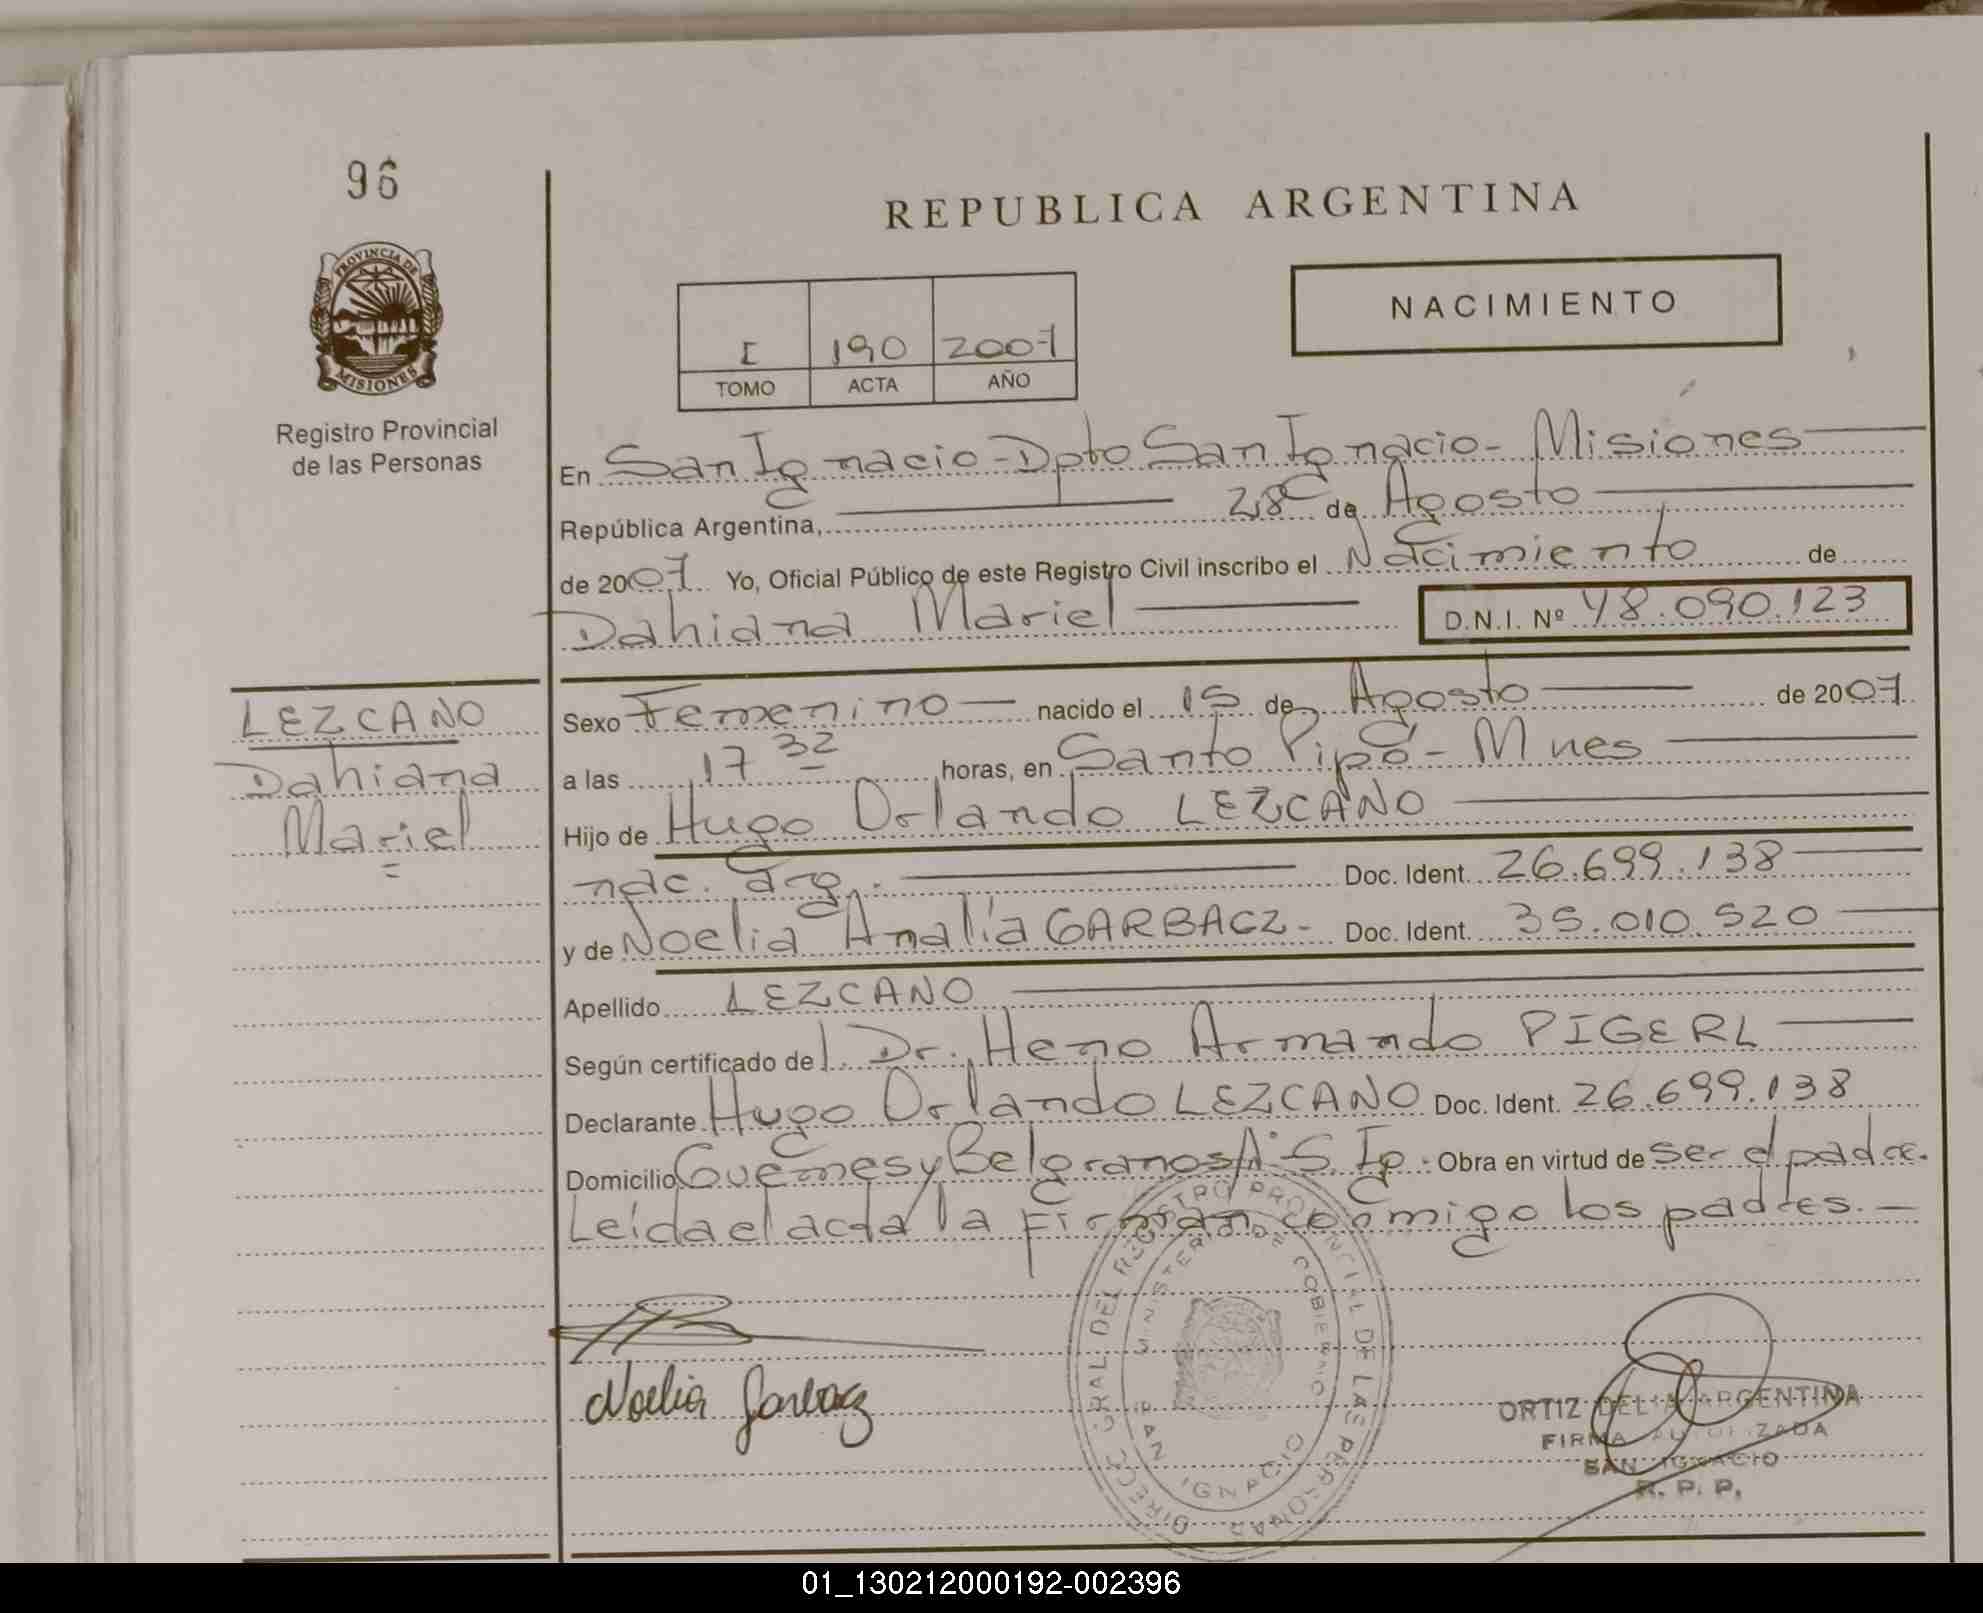 96
REPUBLICA ARGENTINA
PROVINCIA DE
MISIONES
Registro Provincial
de las Personas
I 190 2007
TOMO ACTA AÑO
NACIMIENTO
En San Ignacio - Dpto San Ignacio - Misiones
República Argentina, 28 de Agosto
de 2007 Yo, Oficial Público de este Registro Civil inscribo el Nacimiento de
Dahiana Mariel D.N.I. Nº 48.090.123
LEZCANO
Dahiana
Mariel
Sexo Femenino nacido el 15 de Agosto de 2007
a las 17 32 horas, en Santo Pipó - Mnes
Hijo de Hugo Orlando LEZCANO
nac. arg. Doc. Ident. 26.699.138
y de Noelia Analía GARBACZ - Doc. Ident. 35.010.520
Apellido LEZCANO
Según certificado del Dr. Heno Armando PIGERL
Declarante Hugo Orlando LEZCANO Doc. Ident. 26.699.138
Domicilio Guemes y Belgrano s/n - S. Ig. Obra en virtud de ser el padre.
Leída el acta la firman conmigo los padres. -
Noelia Garbacz
DIRECC. GRAL DEL REGISTRO PROVINCIAL DE LAS PERSONAS
MINISTERIO DE GOBIERNO
SAN IGNACIO
ORTIZ DELIA ARGENTINA
FIRMA AUTORIZADA
SAN IGNACIO
R. P. P.
01_130212000192-002396